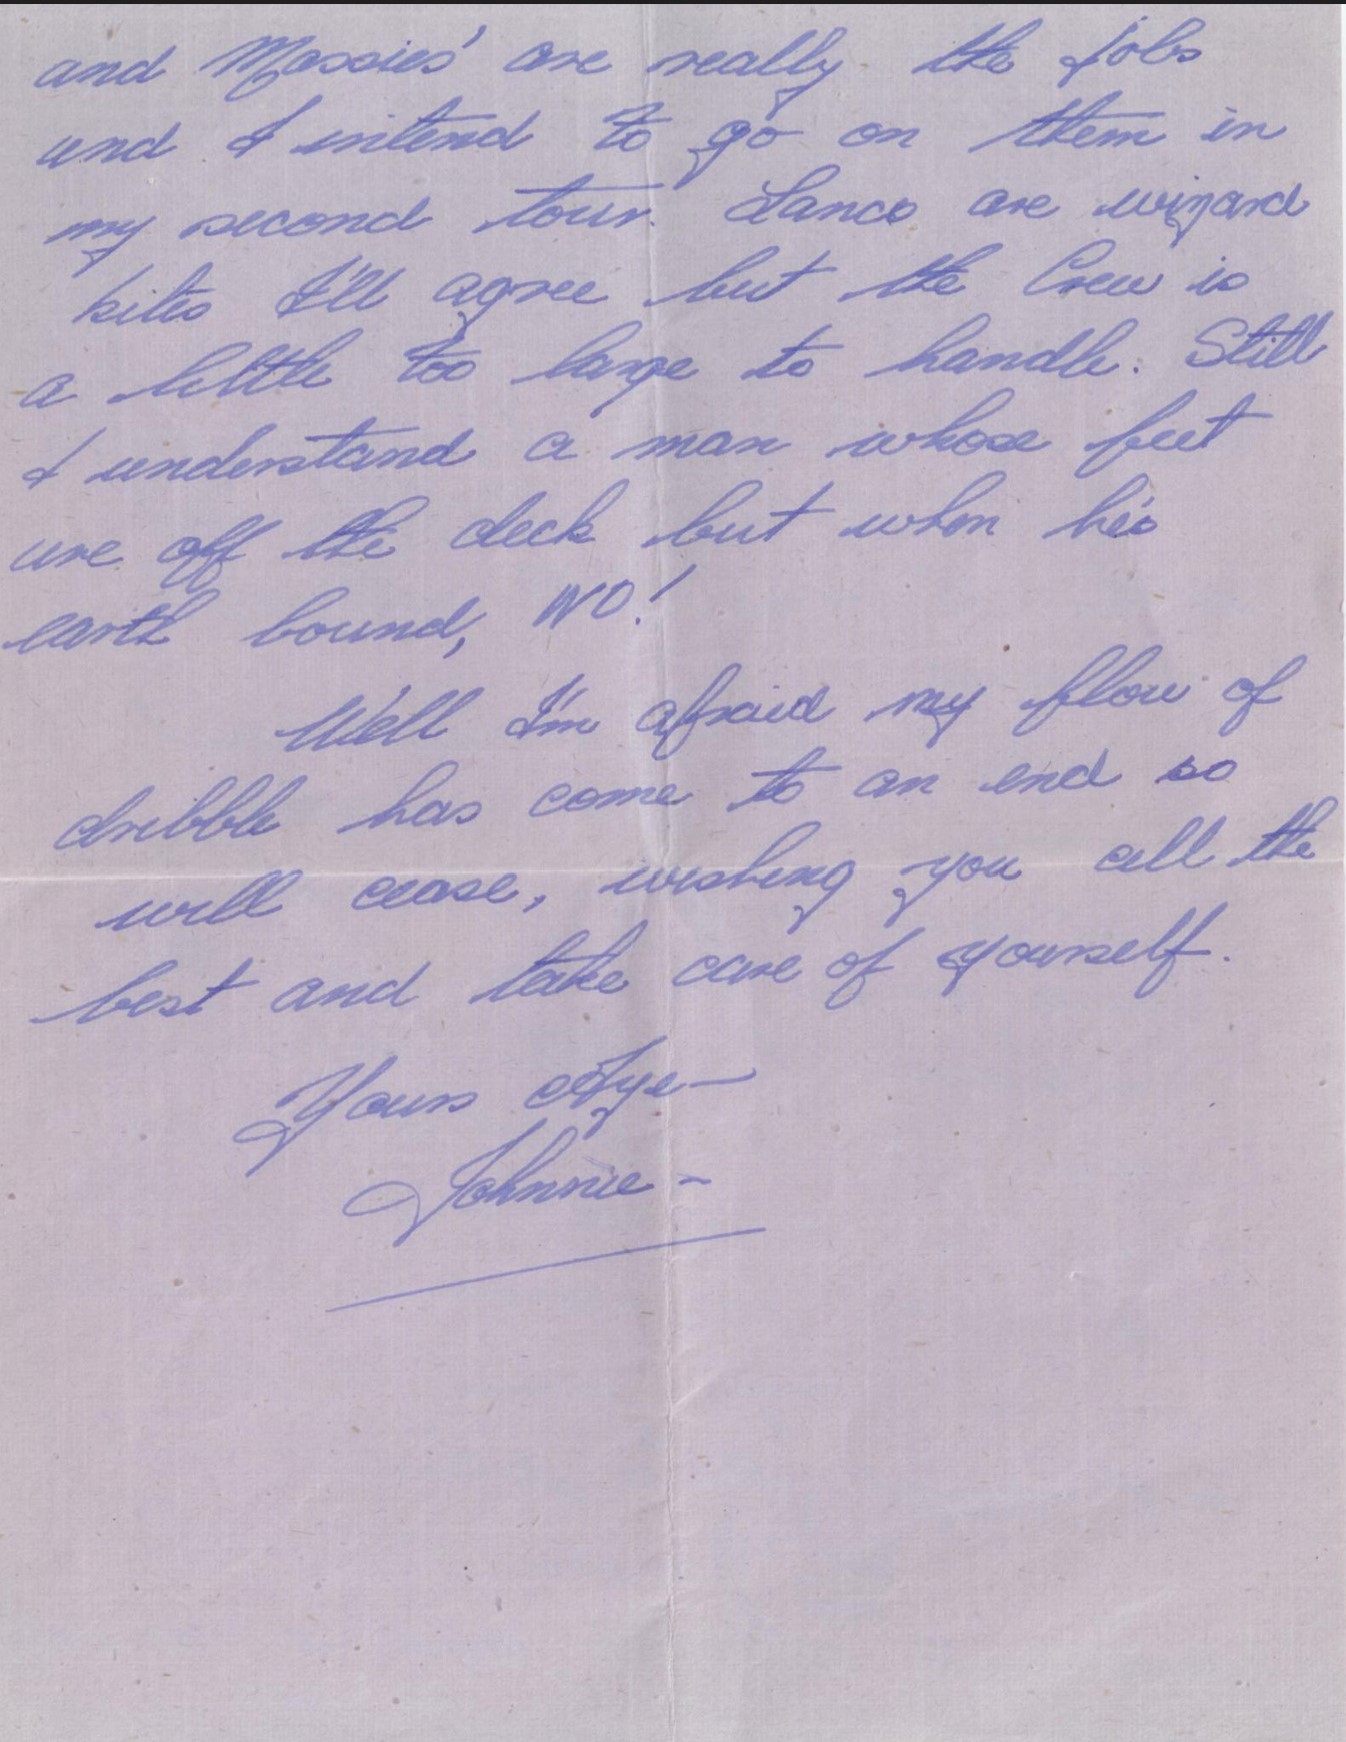 and Mossies' are really the jobs
and I intend to go on them in
my second tour. Lancs are wizard
kites I'll agree but the Crew is
a little too large to handle. Still
I understand a man whose feet
are off the deck but when he's
earth bound, NO!
Well I'm afraid my flow of
dribble has come to an end so
will cease, wishing you all the
best and take care of yourself.
Yours Aye-
Johnnie -